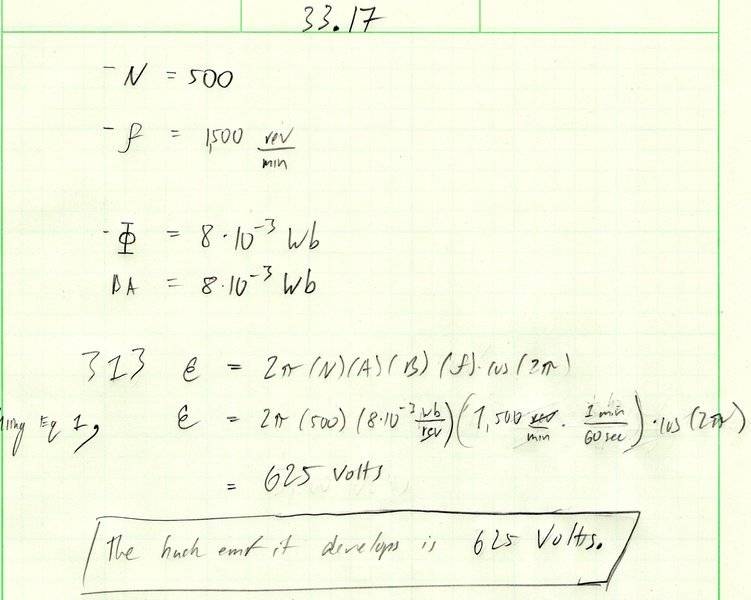 33.17
- N = 500
- f = 1,500 rev/min
- Φ = 8·10⁻³ Wb
BA = 8·10⁻³ Wb
313 ε = 2π (N)(A)(B)(f)·cos(2π)
Eq 1, ε = 2π (500) (8·10⁻³ wb/rev) (1,500 rev/min · 1 min/60 sec) · cos(2π)
= 625 Volts
The back emf it develops is 625 Volts.